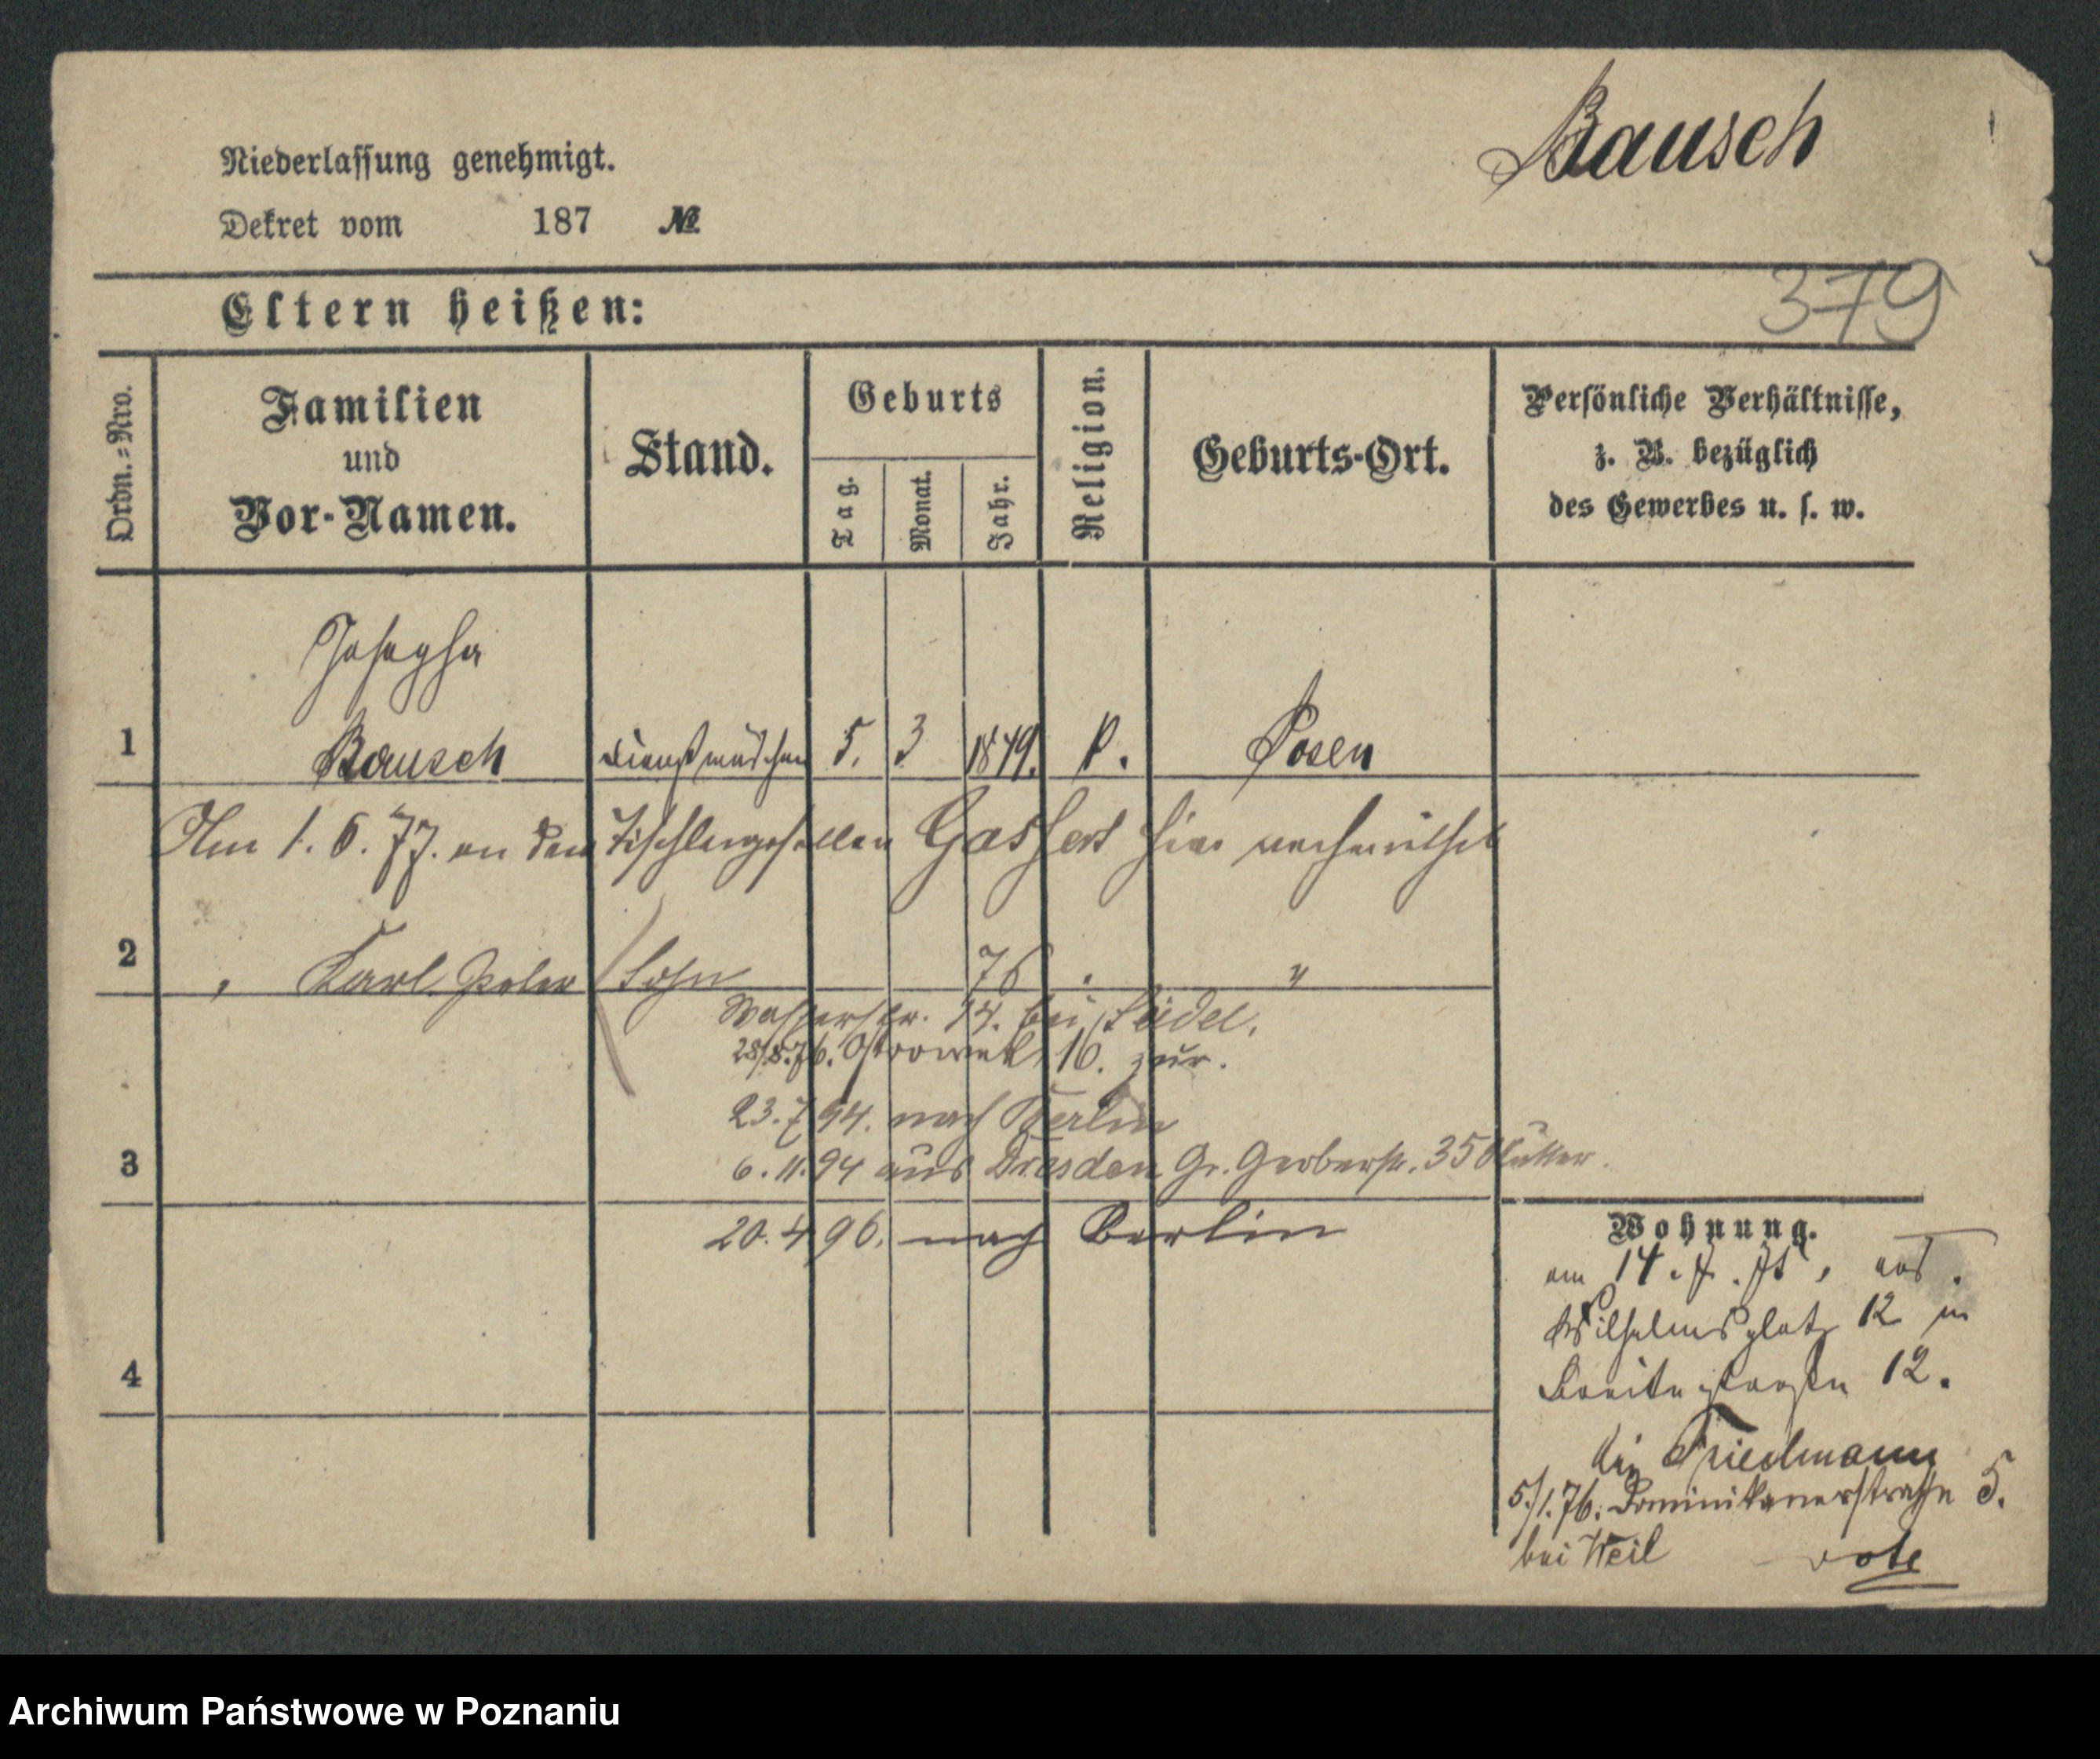 Bausch
Niederlassung genehmigt.
Dekret vom 187 №
379
Eltern heißen:
Ordn.=Nro.
Familien
und
Vor-Namen.
Stand.
Geburts
Tag.
Monat.
Jahr.
Religion.
Geburts-Ort.
Persönliche Verhältnisse,
z. B. bezüglich
des Gewerbes u. s. w.
Josepha
1 Bausch Dienstmädchen 5. 3 1849. k. Posen
Am 1. 6. 77. an den Tischlergesellen hier verheirathet
2 Karl Peter Sohn 76 "
Wasserstr. 14. bei Seidel.
28/8.76. Ostrowek 16. zur.
23.7 94. nach Berlin
3 6.11.94 aus Dresden Gr. Gerberstr. 35
20.4 96. nach Berlin
4
Wohnung.
am 14. 7. 75, von
Wilhelmsplatz 12 in
Breitestraße 12.
bei Friedmann
5/1.76. Dominikanerstraße 5.
bei Weil
Archiwum Państwowe w Poznaniu